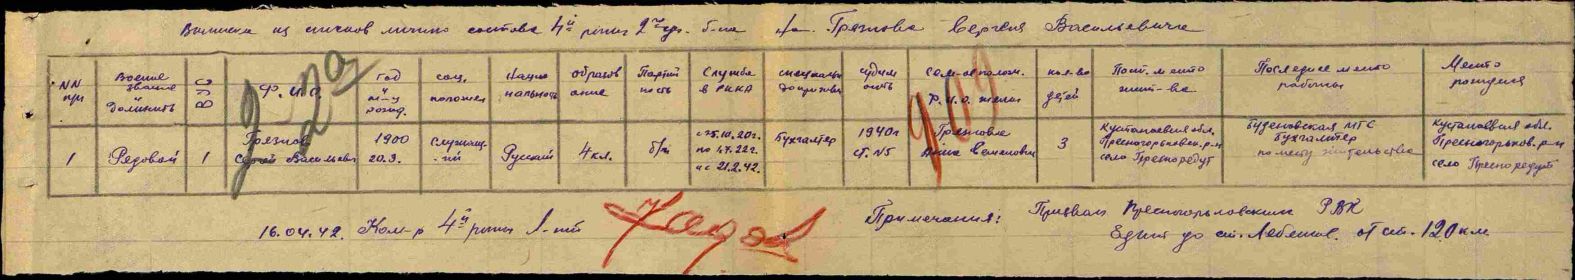 Выписка из списков личного состава 4й роты 2 б-на на Грязнова Сергея Васильевича
NN п/п
Военное звание должность
ВУС
Ф.И.О.
год и м-ц рожд.
соц. положен
Нацио нальность
образов ание
Партий ность
Служба в РККА
специальн до призыва
судим ость
Сем-ое полож. Ф.И.О. жены
кол-во детей
Пост. место жит-ва
Последнее место работы
Место рождения
1
Рядовой
1
Грязнов Сергей Васильевич
1900 20.9.
Служащ. -ий
Русский
4 кл.
б/п
с 25.10.20г. по 1.7.22г. и с 21.2.42.
Бухгалтер
1940г ст. N5
Грязнова Анна Семеновн
3
Кустанаевская обл. Пресногорьковск. р-н село Пресноредут
Буденовская МТС Бухгалтер по месту жительства
Кустанаевская обл. Пресногорьков. р-н село Пресноредут
16.04.42. Ком-р 4й роты Л-нт
Примечания: Призван Пресногорьковским РВК
Едит до ст. Лебяжья. от ст. 120 км.